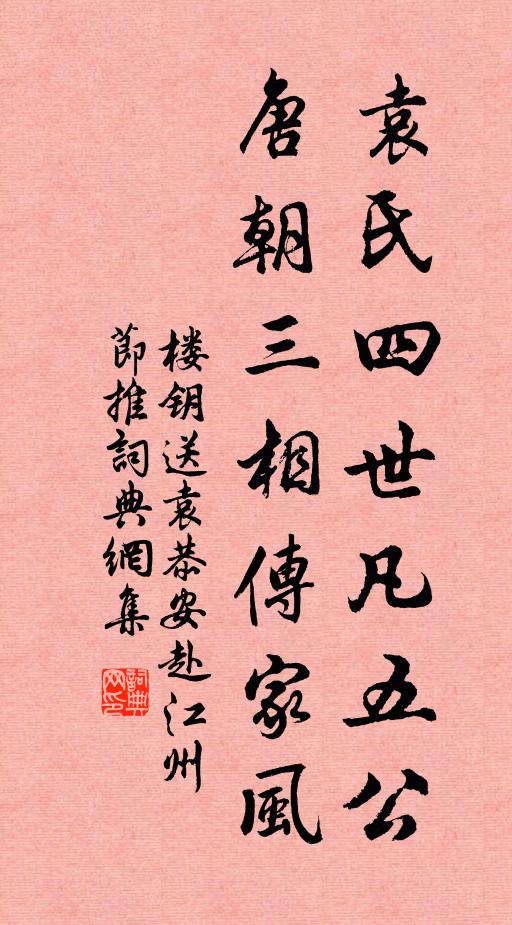 袁氏四世凡五公
唐朝三相傳家風
楼钥送袁恭安赴江州
節推詞典網集
詞典
网印